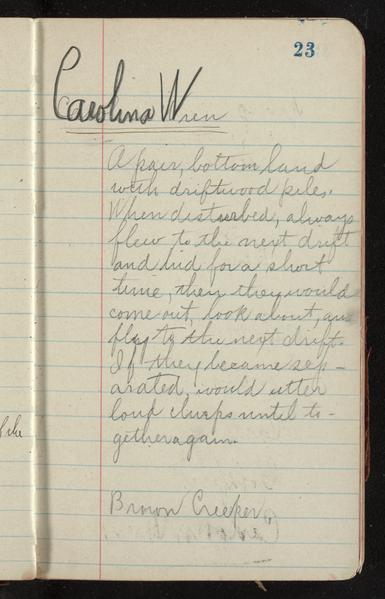 23
Carolina Wren
A pair, bottom land
with driftwood piles.
When disturbed, always
flew to the next drift
and hid for a short
time, then they would
come out, look about, and
fly to the next drift.
If they became sep-
arated, would utter
loud chirps until to-
gether again.
Brown Creeper.